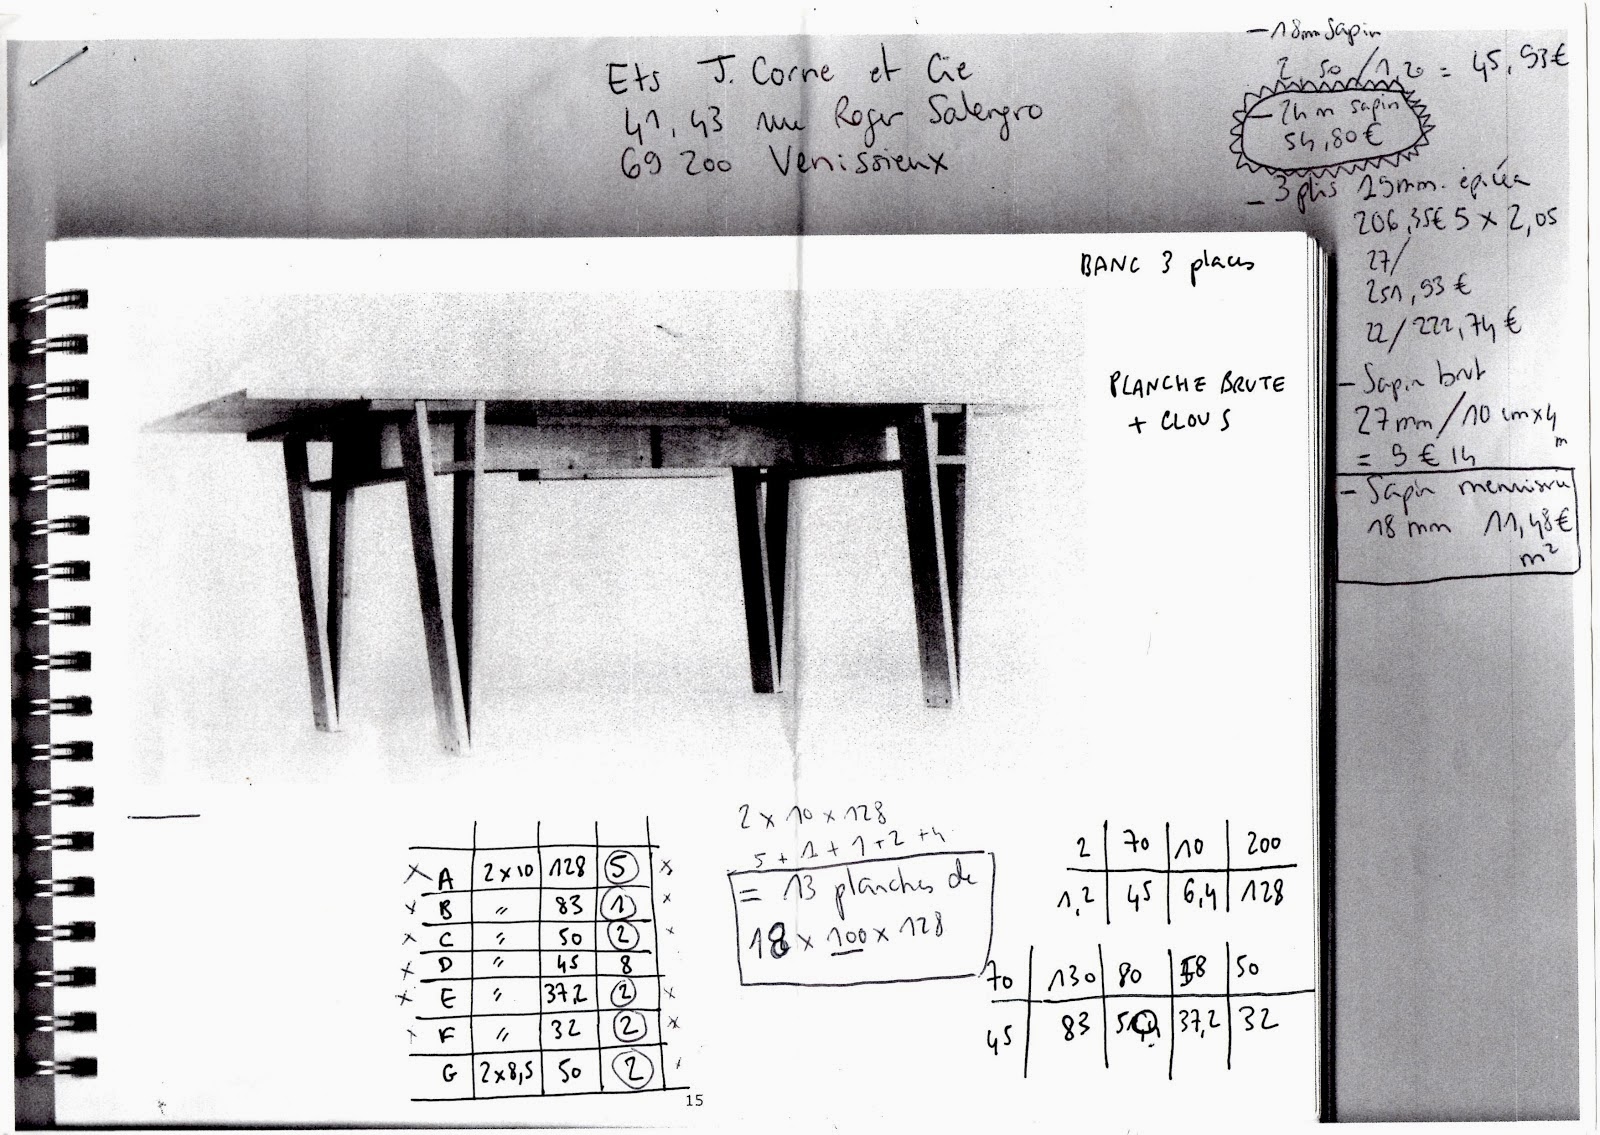 Ets J. Corne et Cie
41, 43 rue Roger Salengro
69 200 Venissieux
- 18mm Sapin
2 50 / 1,20 = 45,93€
- 24 m sapin
54,80€
- 3 plis 19mm. épicéa
206,35€ 5 x 2,05
27/
251,93€
22/222,74€
- Sapin brut
27mm/10 cm x 4 m
= 9€14
- Sapin menuiserie
18 mm 11,48€
m²
BANC 3 places
PLANCHE BRUTE
+ CLOUS
A 2x10 128 5
B " 83 1
C " 50 2
D " 45 8
E " 37,2 2
F " 32 2
G 2x8,5 50 2
15
2 x 10 x 128
5 + 1 + 1 + 2 + 4
= 13 planches de
18 x 100 x 128
2 70 10 200
1,2 45 6,4 128
70 130 80 58 50
45 83 37,2 32